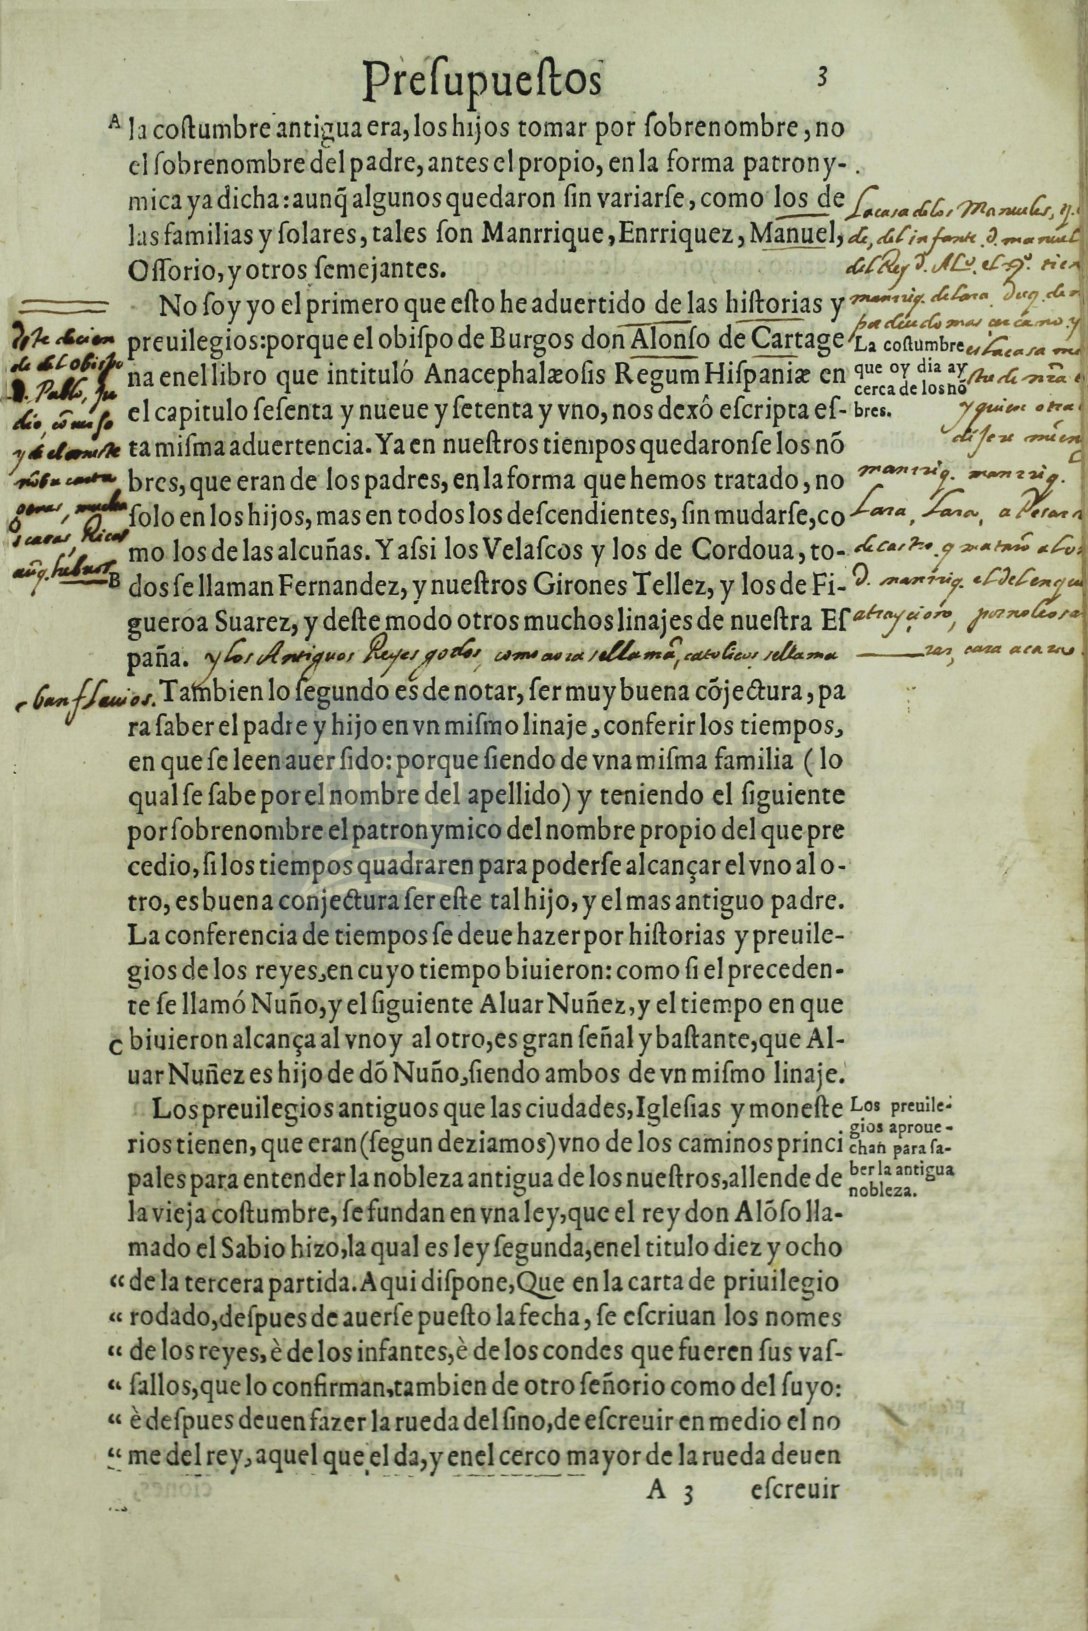 Preſupueſtos
3
A la coſtumbre antigua era, los hijos tomar por ſobrenombre, no
el ſobrenombre del padre, antes el propio, en la forma patrony-
mica ya dicha: aunq̃ algunos quedaron ſin variarſe, como los de
las familias y ſolares, tales ſon Manrrique, Enrriquez, Manuel,
Oſſorio, y otros ſemejantes.
No ſoy yo el primero que eſto he aduertido de las hiſtorias y
preuilegios: porque el obiſpo de Burgos don Alonſo de Cartage
na en el libro que intituló Anacephalæoſis Regum Hiſpaniæ en
el capitulo ſeſenta y nueue y ſetenta y vno, nos dexô eſcripta eſ-
ta miſma aduertencia. Ya en nueſtros tiempos quedaronſe los nõ
bres, que eran de los padres, en la forma que hemos tratado, no
ſolo en los hijos, mas en todos los deſcendientes, ſin mudarſe, co
mo los de las alcuñas. Y aſsi los Velaſcos y los de Cordoua, to-
B dos ſe llaman Fernandez, y nueſtros Girones Tellez, y los de Fi-
gueroa Suarez, y deſte modo otros muchos linajes de nueſtra Eſ
paña. y los Antiguos Reyes godos, como aora se llamã, catolicos se llama
ban flauios. Tambien lo ſegundo es de notar, ſer muy buena cõjectura, pa
ra ſaber el padre y hijo en vn miſmo linaje, conferir los tiempos,
en que ſe leen auer ſido: porque ſiendo de vna miſma familia ( lo
qual ſe ſabe por el nombre del apellido) y teniendo el ſiguiente
por ſobrenombre el patronymico del nombre propio del que pre
cedio, ſi los tiempos quadraren para poderſe alcançar el vno al o-
tro, es buena conjectura ſer eſte tal hijo, y el mas antiguo padre.
La conferencia de tiempos ſe deue hazer por hiſtorias y preuile-
gios de los reyes, en cuyo tiempo biuieron: como ſi el preceden-
te ſe llamó Nuño, y el ſiguiente Aluar Nuñez, y el tiempo en que
C biuieron alcança al vno y al otro, es gran ſeñal y baſtante, que Al-
uar Nuñez es hijo de dõ Nuño, ſiendo ambos de vn miſmo linaje.
Los preuilegios antiguos que las ciudades, Igleſias y moneſte
rios tienen, que eran (ſegun deziamos) vno de los caminos princi
pales para entender la nobleza antigua de los nueſtros, allende de
la vieja coſtumbre, ſe fundan en vna ley, que el rey don Alõſo lla-
mado el Sabio hizo, la qual es ley ſegunda, en el titulo diez y ocho
“ de la tercera partida. Aqui diſpone, Que en la carta de priuilegio
“ rodado, deſpues de auerſe pueſto la fecha, ſe eſcriuan los nomes
“ de los reyes, è de los infantes, è de los condes que fueren ſus vaſ-
“ ſallos, que lo confirman, tambien de otro ſeñorio como del ſuyo:
“ è deſpues deuen fazer la rueda del ſino, de eſcreuir en medio el no
“ me del rey, aquel que el da, y en el cerco mayor de la rueda deuen
A 3 eſcreuir
La coſtumbre
que oy dia ay
cerca de los nõ
bres.
Los preuile-
gios aproue-
chan para ſa-
ber la antigua
nobleza.
La casa de los Manueles,
del infante d. manuel
del Rey
manriq. de lara
manrriq. manrriq.
Lara, Lara,
de castro, q mataro
d. manriq.
de del obispo
D. Pablo, Ju
dio,